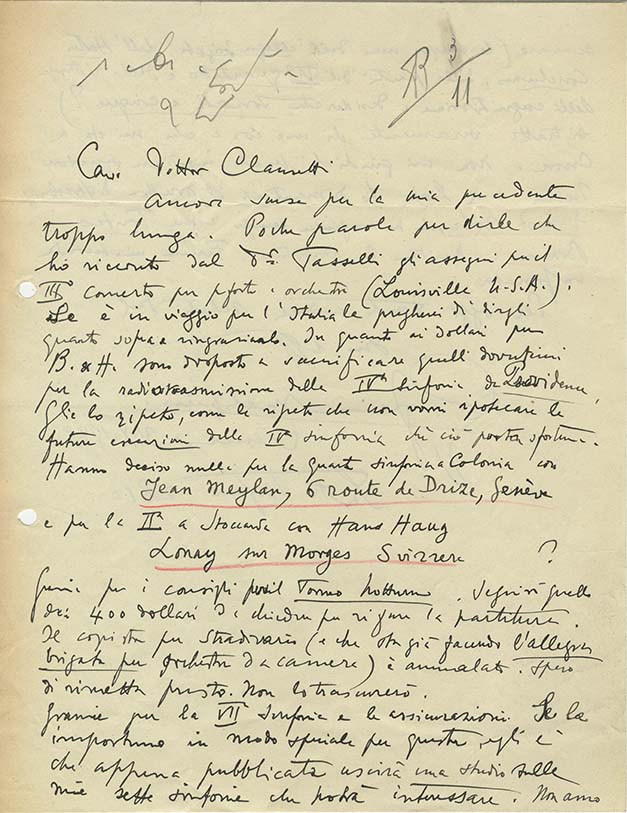 R 3/11
Caro Dottor Clausetti
Ancora scuse per la mia precedente
troppo lunga. Poche parole per dirle che
ho ricevuto dal Dr. Tasselli gli assegni per il
III° concerto per pforte e orchestra (Louisville U.S.A.).
Se è in viaggio per l'Italia le pregherei di dirgli
quanto sopra e ringraziarlo. In quanto ai dollari per
B. e H. sono disposto a sacrificare quelli dovutimi
per la radiotrasmissione della IVª Sinfonia da Providence,
Glie lo ripeto, come le ripeto che non vorrei ipotecare le
future esecuzioni della IVª sinfonia chè ciò porta sfortuna.
Hanno deciso nulla per la quarta sinfonia a Colonia con
Jean Meylan, 6 route de Drize, Genève
e per la IIª a Stoccarda con Hans Haug
Lonay sur Morges Svizzera ?
Grazie per i consigli per il Torneo Notturno. Seguirò quello
dei 400 dollari da chiedere per rifare la partitura.
Il copista per Stradivario (e che sta già facendo l'allegra
brigata per orchestra da camera) è ammalato. Spero
si rimetta presto. Non lo trascurerò.
Grazie per la VII Sinfonia e le assicurazioni. Se la
importuno in modo speciale per questa, egli è
che appena pubblicata uscirà uno studio sulle
mie sette sinfonie che potrà interessare. Non amo